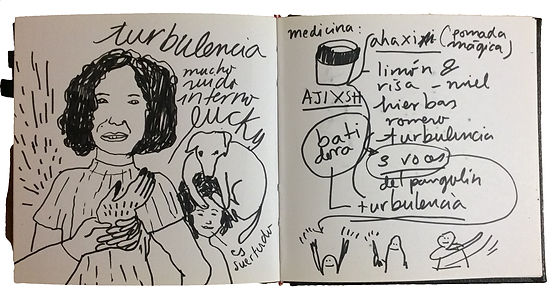 turbulencia
mucho
ruido
interno
lucky
es
suertudo
medicina:
ahaxixt (pomada
mágica)
AJIXSH
limón &
risa - miel
hierbas
romero
turbulencia
bati
dora
3 voces
del pangolín
turbulencia